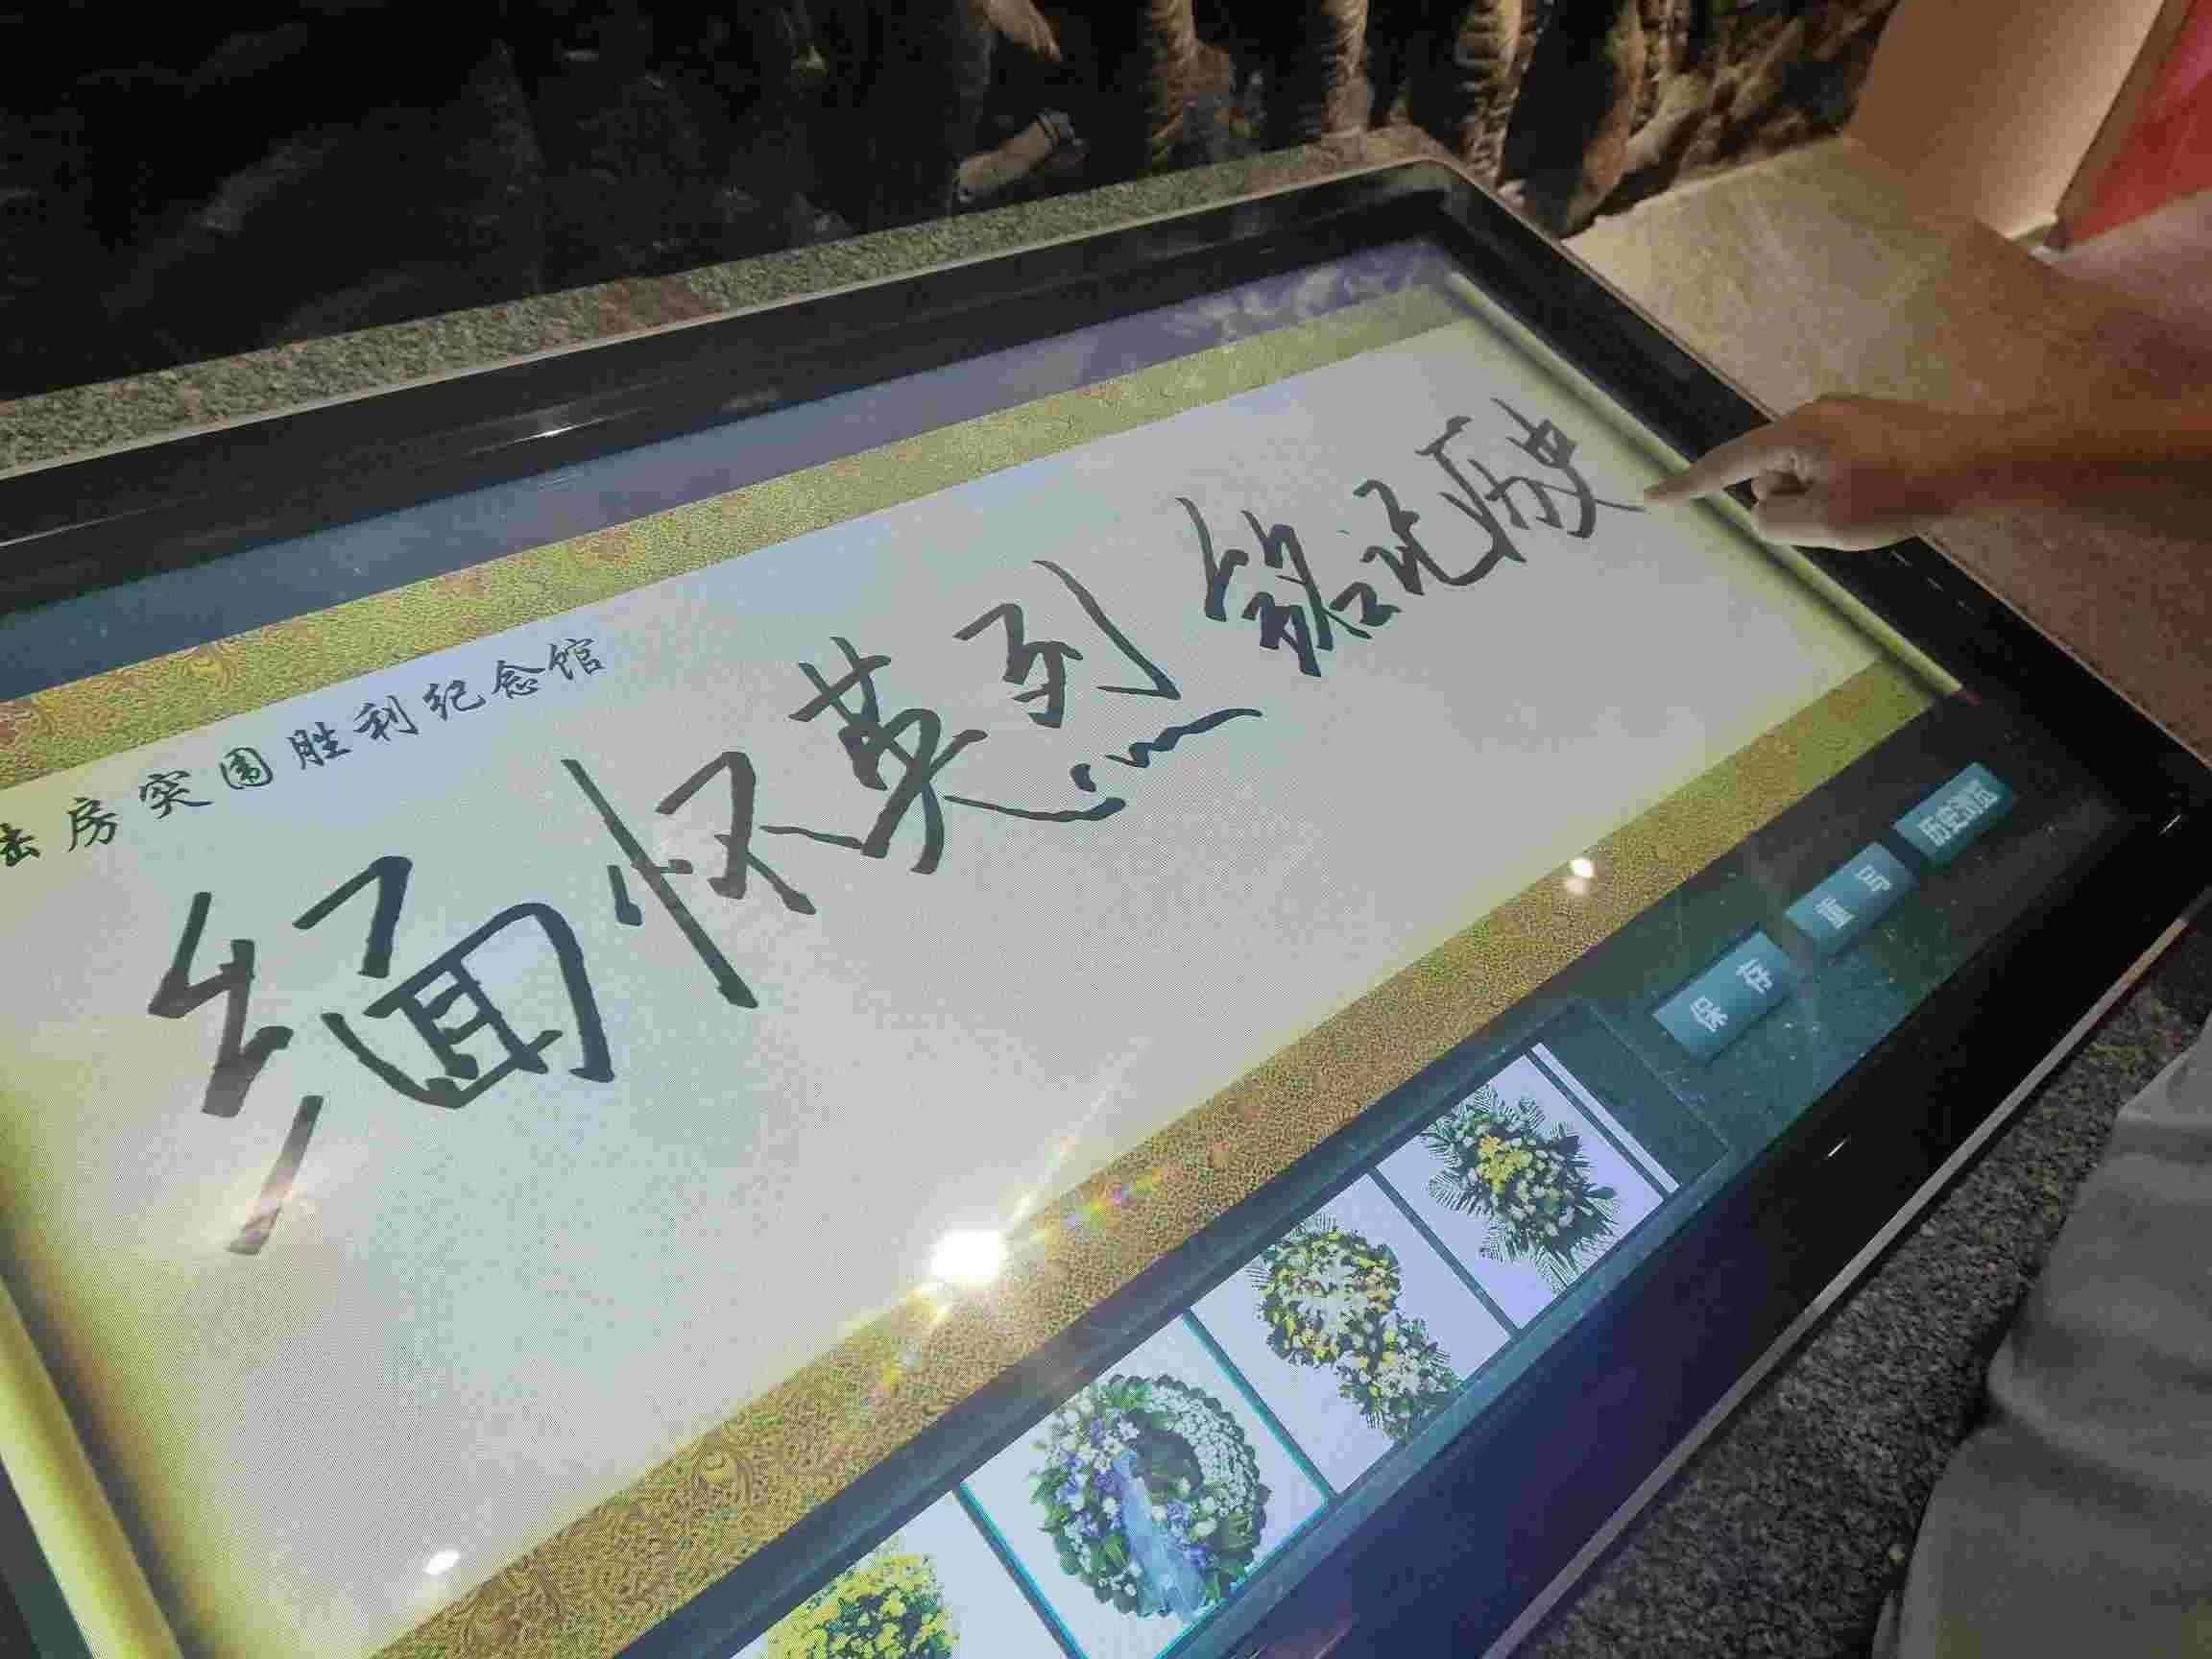 房突围胜利纪念馆
缅怀英烈 铭记历史
保存
重写
历史浏览